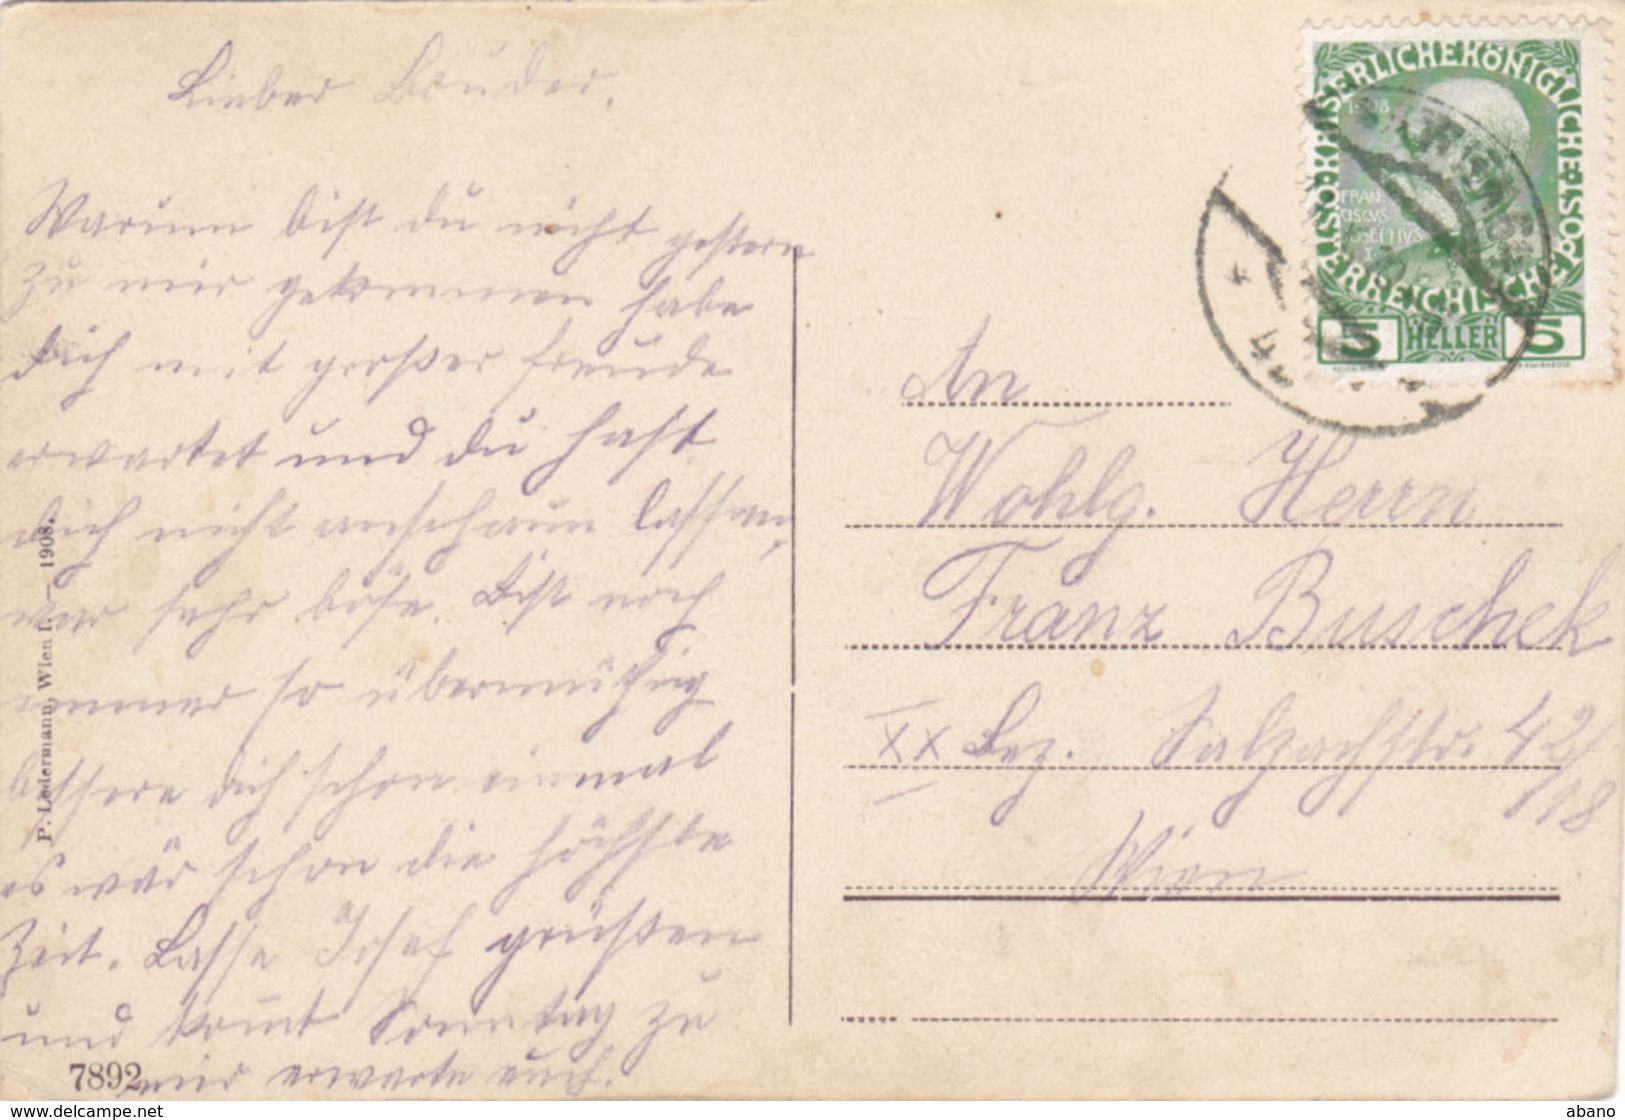 Lieber Bruder.
Warum bist du nicht gestern
zu mir gekommen habe
dich mit großer freude
erwartet und du hast
dich nicht anschaun lassen,
war sehr böse. Bist noch
immer so übermüthig
bessere dich schon einmal
es wär schon die höchste
Zeit. Lasse Josef grüßen
und kommt Sonntag zu
mir erwarte euch.
7892
P. Ledermann, Wien I. — 1908.
KAISERLICHEKÖNIGLICHE
ÖSTERREICHISCHE POST
1908
FRAN
CISCVS
IOSEPHVS
I
5 HELLER 5
An
Wohlg. Herrn
Franz Buschek
XX Bez. Salzachstr. 42/18
Wien
www.delcampe.net
abano